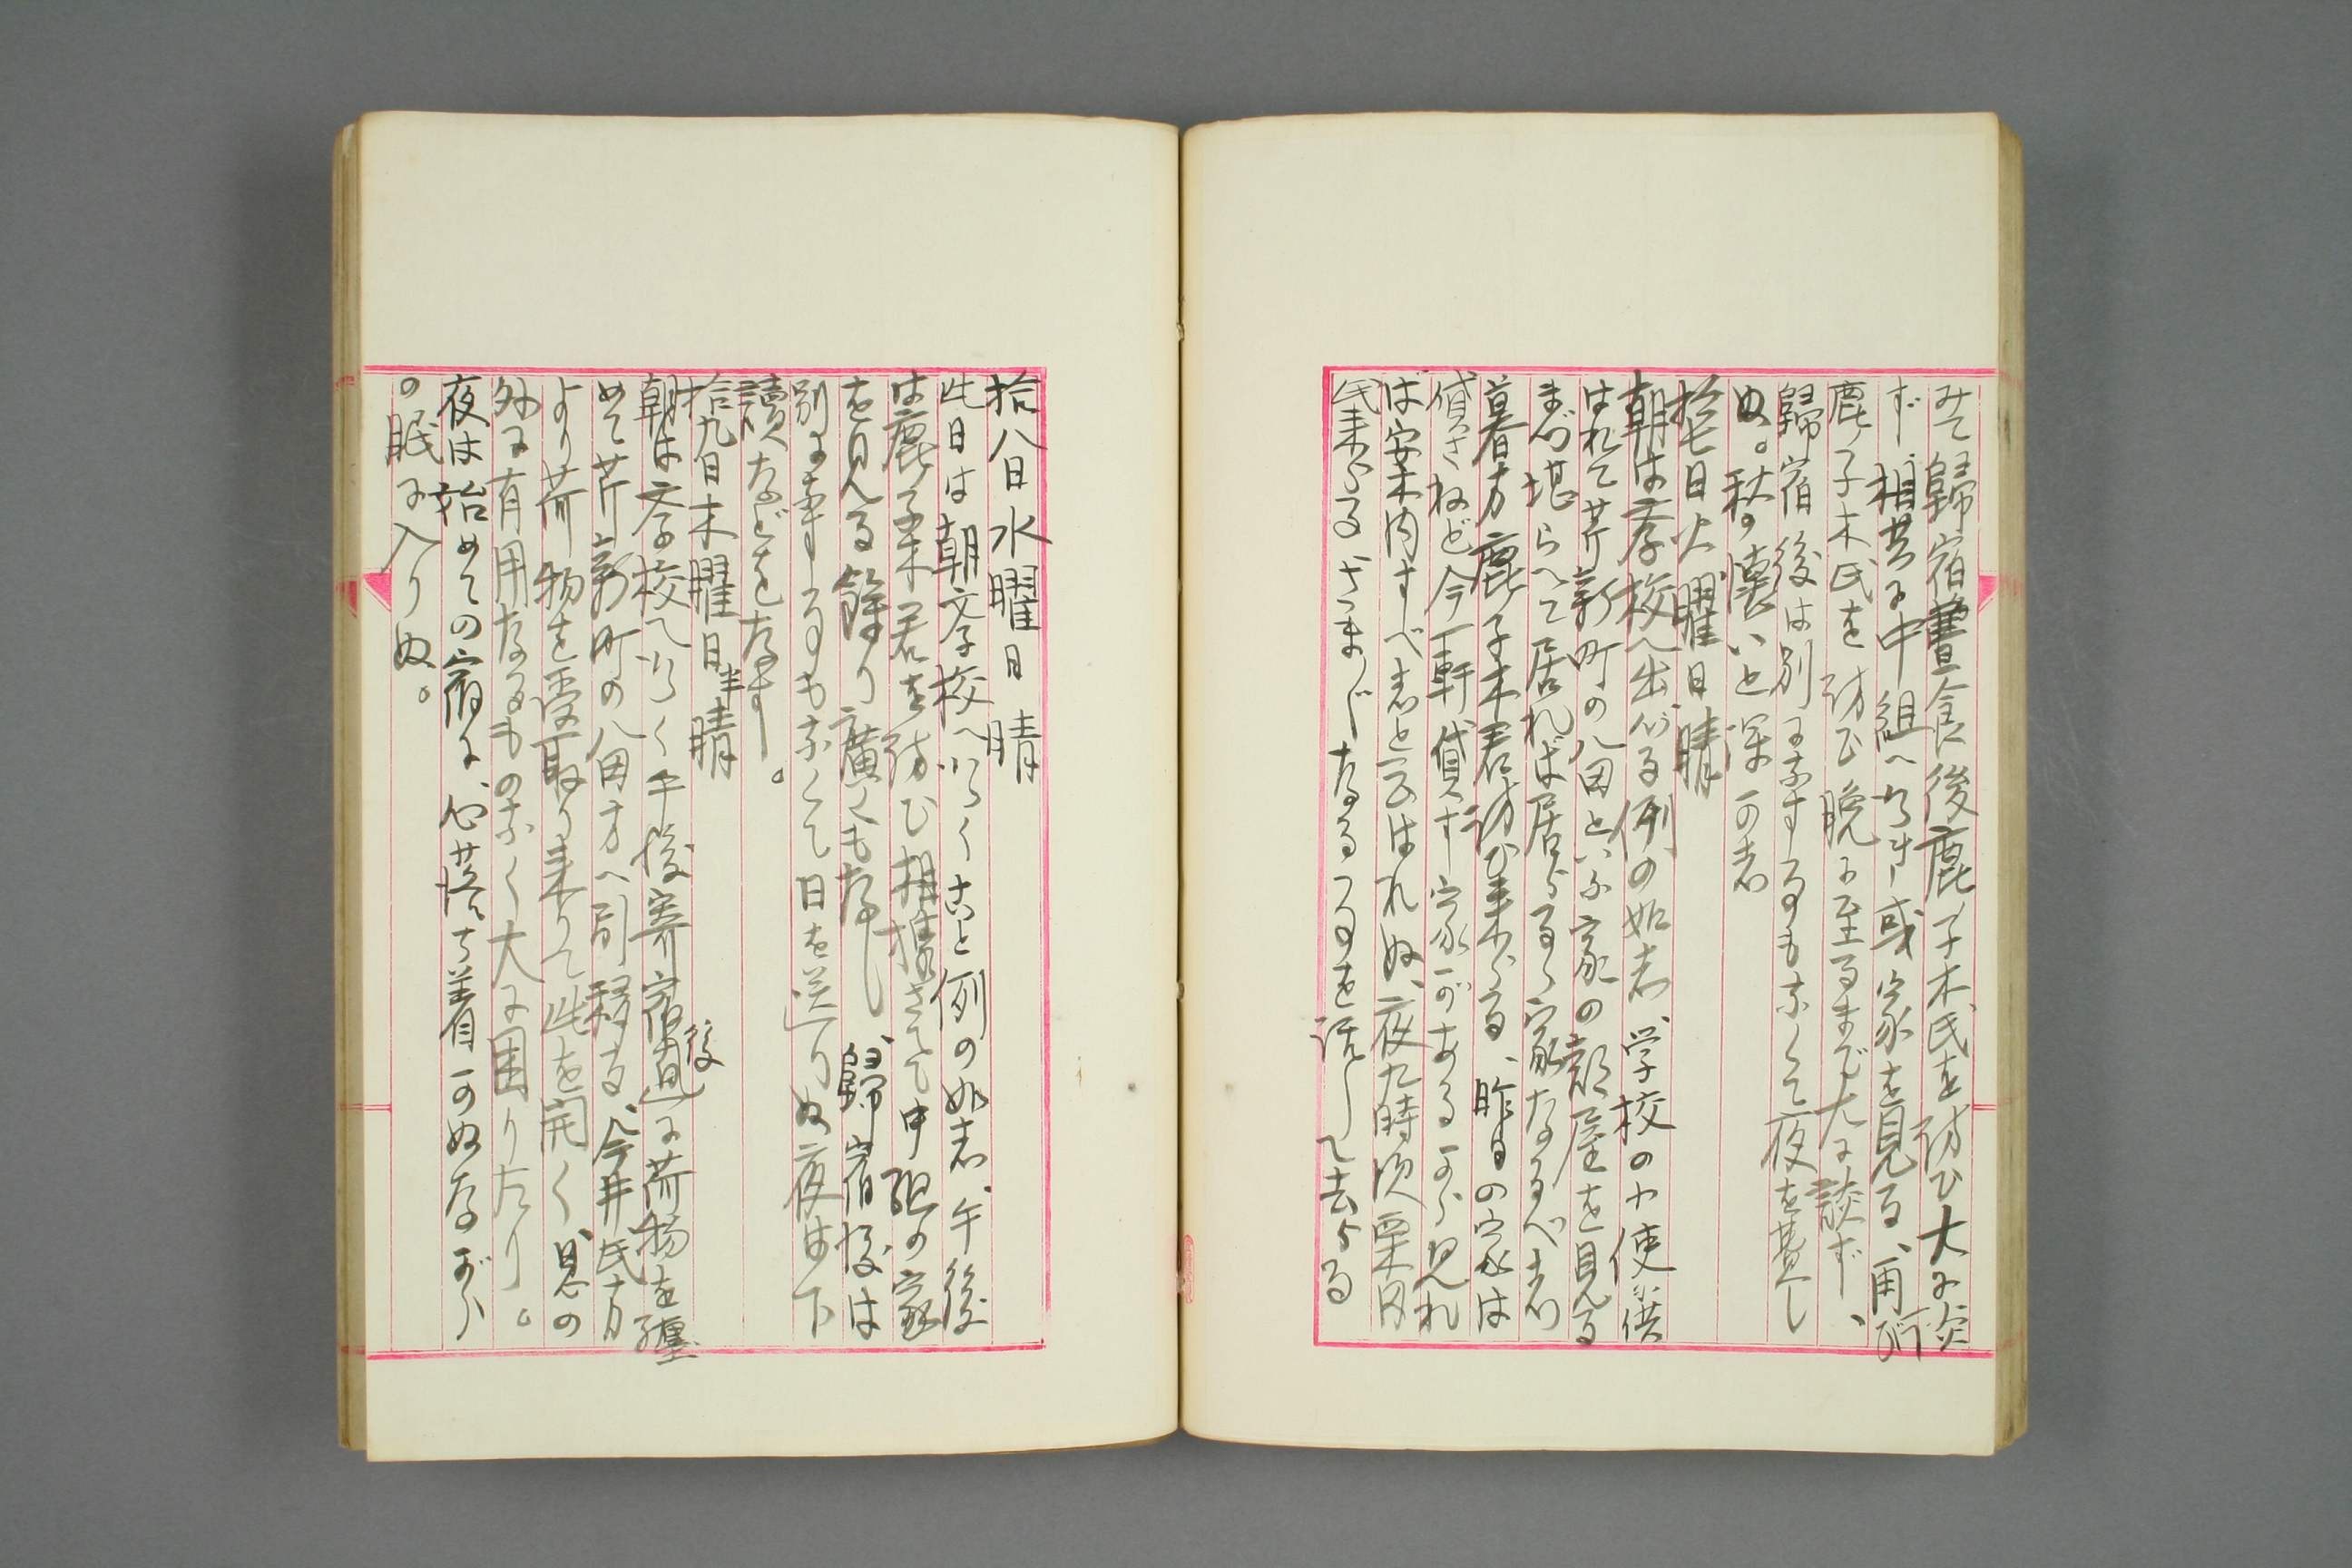 みて歸宿晝食後鹿子木氏を訪ひ大に談
ず相共に中組へ行き或家を見る、再び
鹿子木氏を訪ひ晩に至るまで大に談ず、
歸宿後は別に為す事もなくて夜を費し
ぬ。秋の懐いと深かし
拾七日火曜日晴
朝は学校へ出づる例の如し、学校の小使供
はれて芹新町の八田といふ家の部屋を見る
まづ堪らへて居れば居らるゝ家なるべし
暮方鹿子木君訪ひ来らる、昨日の家は
貸さねど今一軒貸す家がある から見れ
ば案内すべしと云はれぬ、夜九時頃栗田
氏来らる さまじなる事を話して去らる
拾八日水曜日 晴
此日は朝学校へ行くこと例の如し、午後
は鹿子木君を訪ひ相携さえて中組の家
を見る餘り廣くもなし、歸宿後は
別に事する事もなくて日を送りぬ夜は下
讀などをなす。
拾九日木曜日半晴
朝は学校へ行く午後寄宿舍に荷物を纏
後
めて芹新町の八田方へ引移る、今井氏方
より荷物を受取り来りて此を開く、思の
外に有用なるものなく大に困りたり。
夜は始めての宿に、心落ち着かぬながら
の眠に入りぬ。